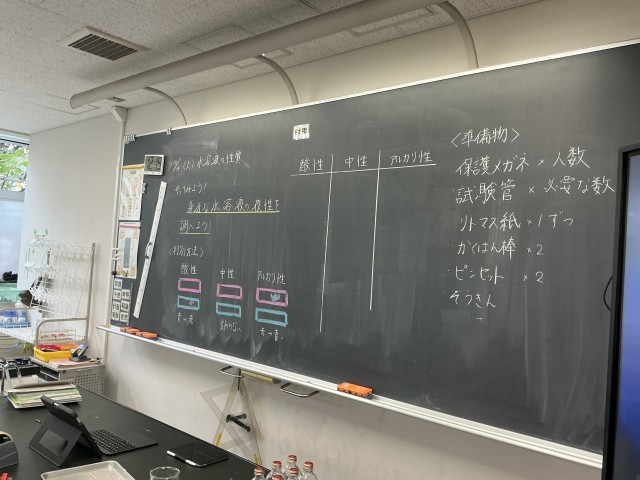 (火) 水溶液の性質
やってみよう!
身近な水溶液の液性を
調べよう!
<判別方法>
酸性 中性 アルカリ性
青→赤 変わらない 赤→青
酸性 中性 アルカリ性
<準備物>
保護メガネ × 人数
試験管 × 必要な数
リトマス紙 × 1ずつ
かくはん棒 × 2
ピンセット × 2
ぞうきん